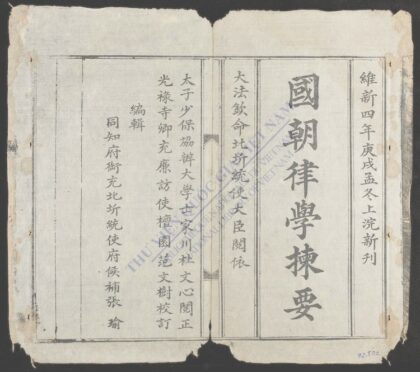 維新四年庚戌孟冬上浣新刊
國朝律學揀要
大法欽命北圻統使大臣閱依
太子少保協辦大學士家川杜文心閱正
光祿寺卿充廉訪使檀園范文樹校訂
編輯
同知府銜充北圻統使府候補張瑜
THƯ VIỆN QUỐC GIA VIỆT NAM
NATIONAL LIBRARY OF VIETNAM